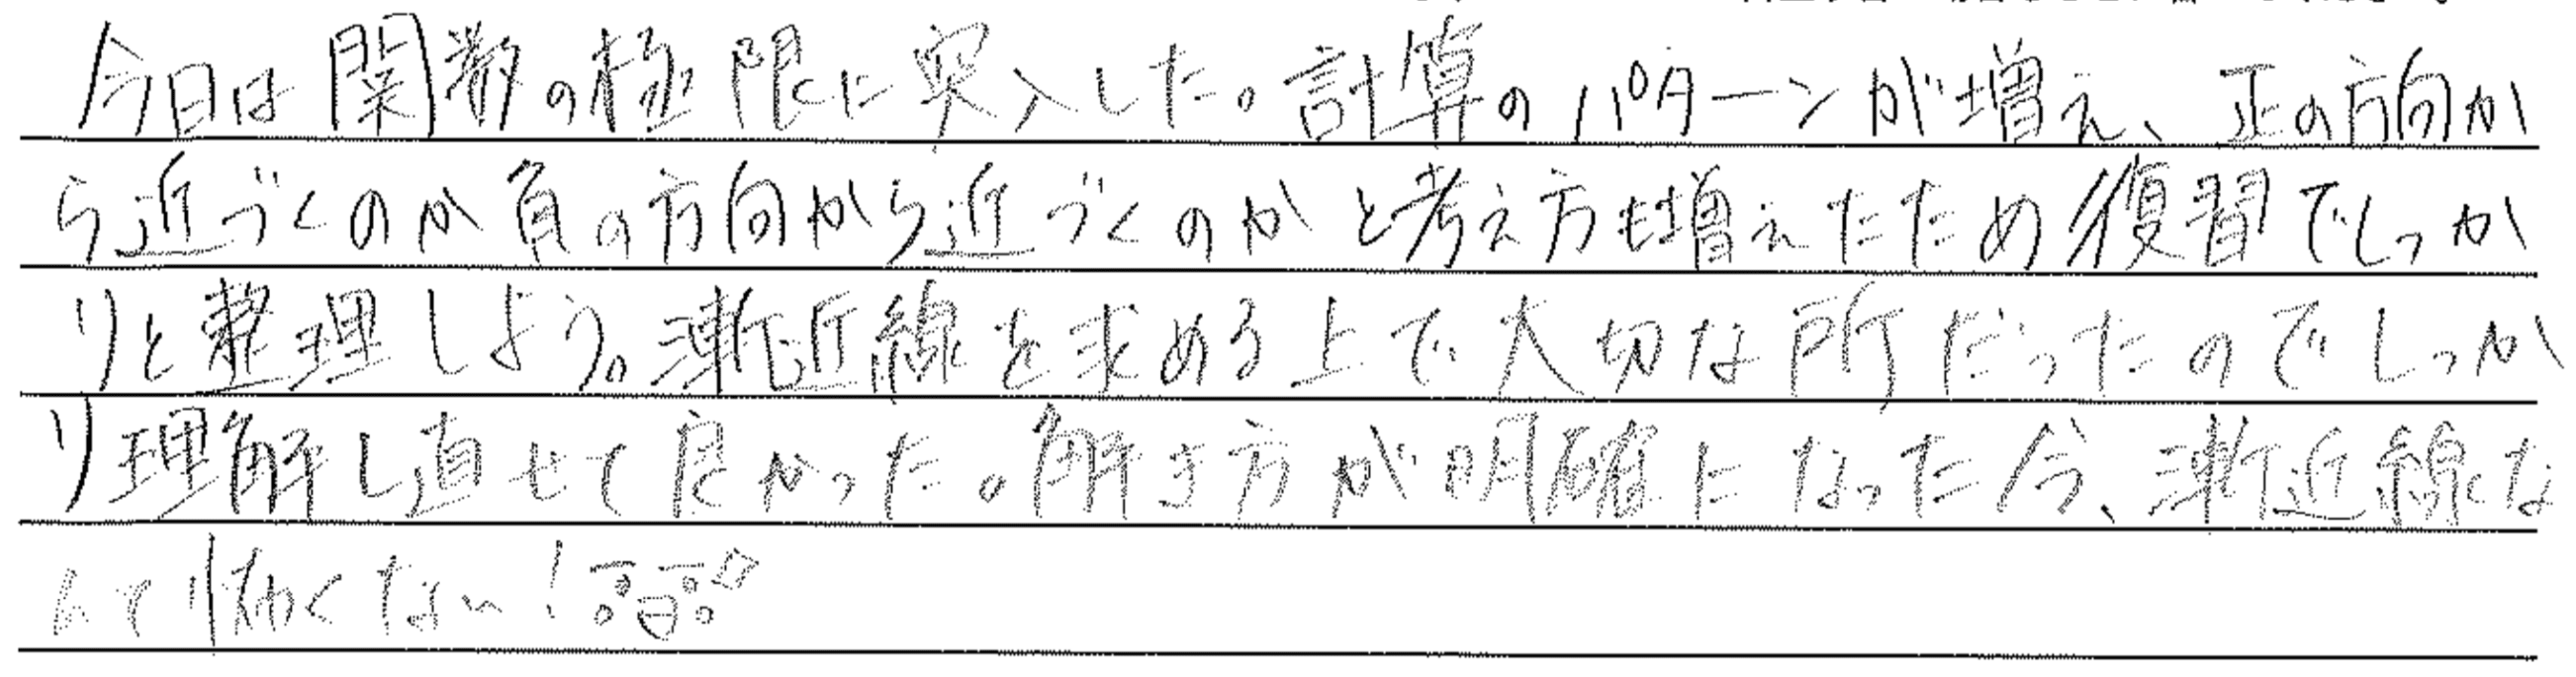 今日は関数の極限に突入した。計算のパターンが増え、正の方向か
ら近づくのか負の方向から近づくのかと考え方も増えたため復習でしっか
りと整理しよう。漸近線を求める上で大切な所だったのでしっか
り理解し直せて良かった。解き方が明確になった今、漸近線な
んて怖くない!